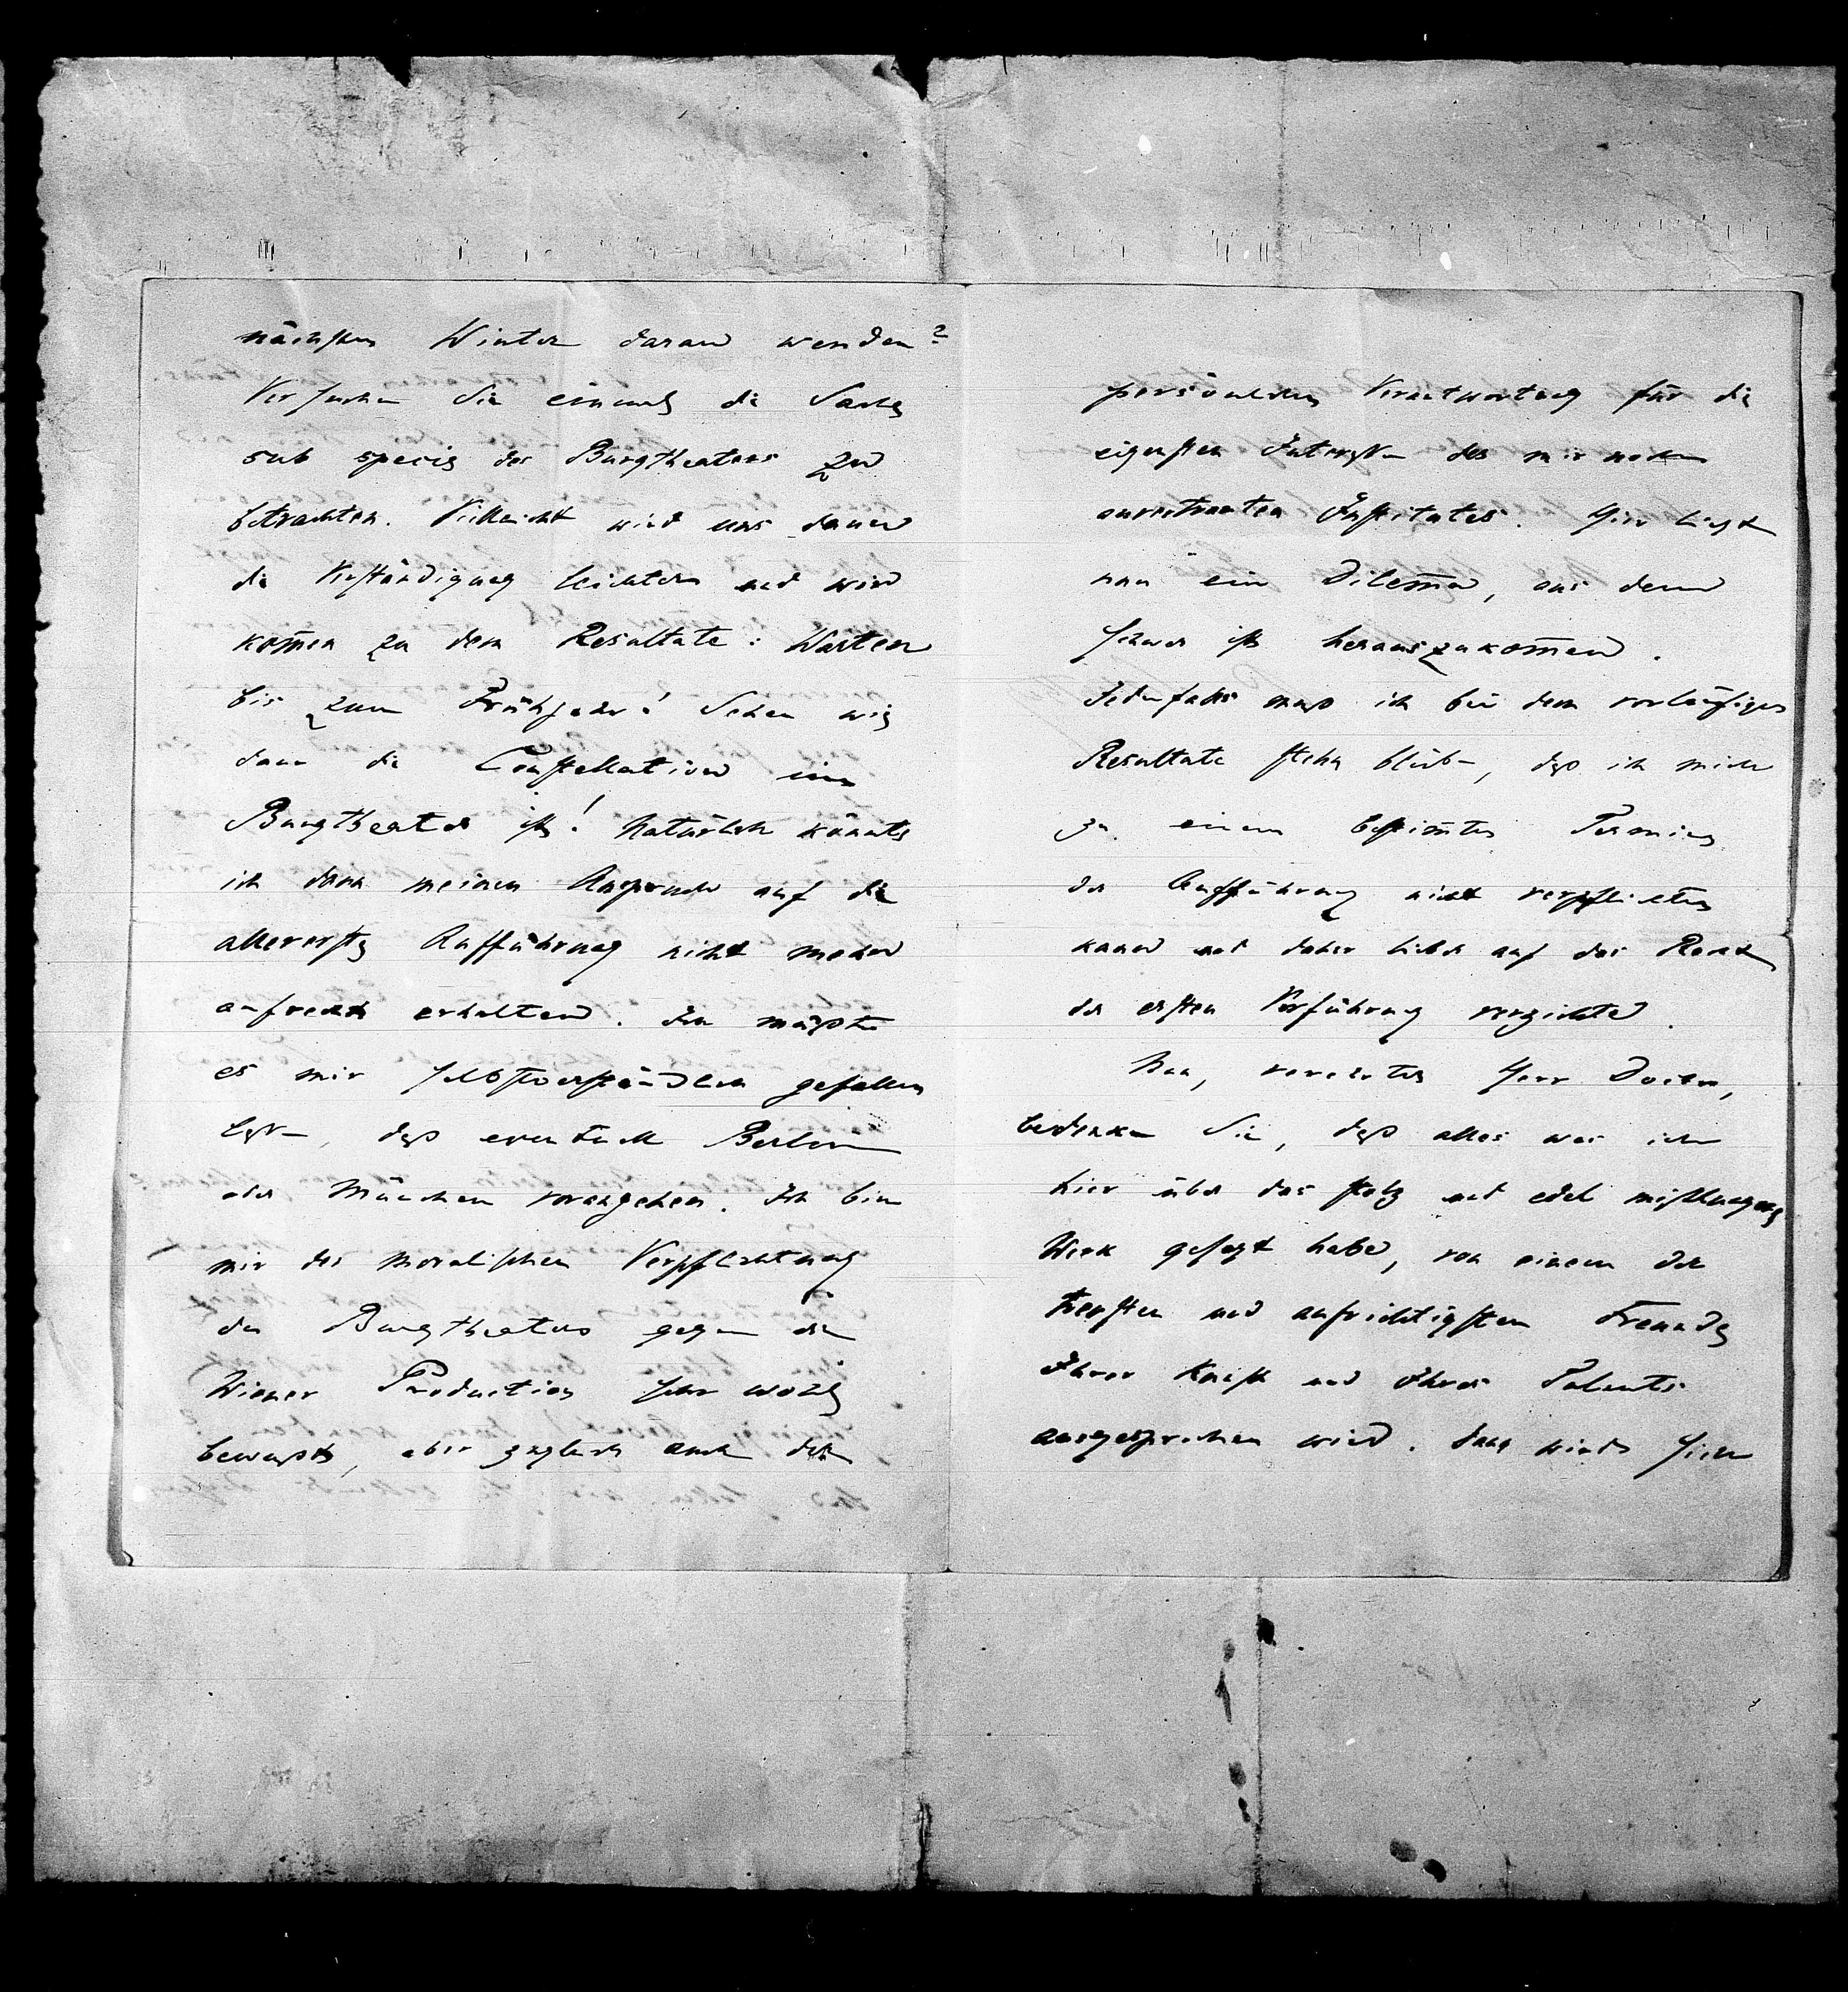 nächsten Winter daran wenden?
Versuchen Sie einmal die Sache
sub specie des Burgtheaters zu
betrachten. Vielleicht wird uns dann
die Verständigung leichter und wir
kom̄en zu dem Resultate: Warten
bis zum Frühjahr! Sehen wie
dann die Constellation im
Burgtheater ist! Natürlich könnte
ich dann meinen Anspruch auf die
allererste Aufführung nicht mehr
aufrecht erhalten. Ich müßte
es mir selbstverständlich gefallen
lassen, daß eventuell Berlin
oder München vorangehen. Ich bin
mir der moralischen Verpflichtung
des Burgtheaters gegen die
Wiener Production sehr wohl
bewußt, aber zugleich auch der
persönlichen Verantwortung für die
eigensten Interessen des mir
anvertrauten Institutes. Hier liegt
nun ein Dilem̄a, aus dem
schwer ist herauszukom̄en.
Jedenfalls muß ich bei dem vorläufigen
Resultate stehn bleiben, daß ich mich
zu einem bestim̄ten Termine
der Aufführung nicht verpflichten
kann und daher lieber auf das Recht
der ersten Vorführung verzichte.
Nun, verehrter Herr Doctor,
bedenken Sie, daß alles was ich
hier über das stolz und edel mißlungene
Werk gesagt habe, von einem der
wärmsten und aufrichtigsten Freunde
Ihrer Kunst und Ihres Talents
ausgesprochen wird. Dann wird's Ihnen